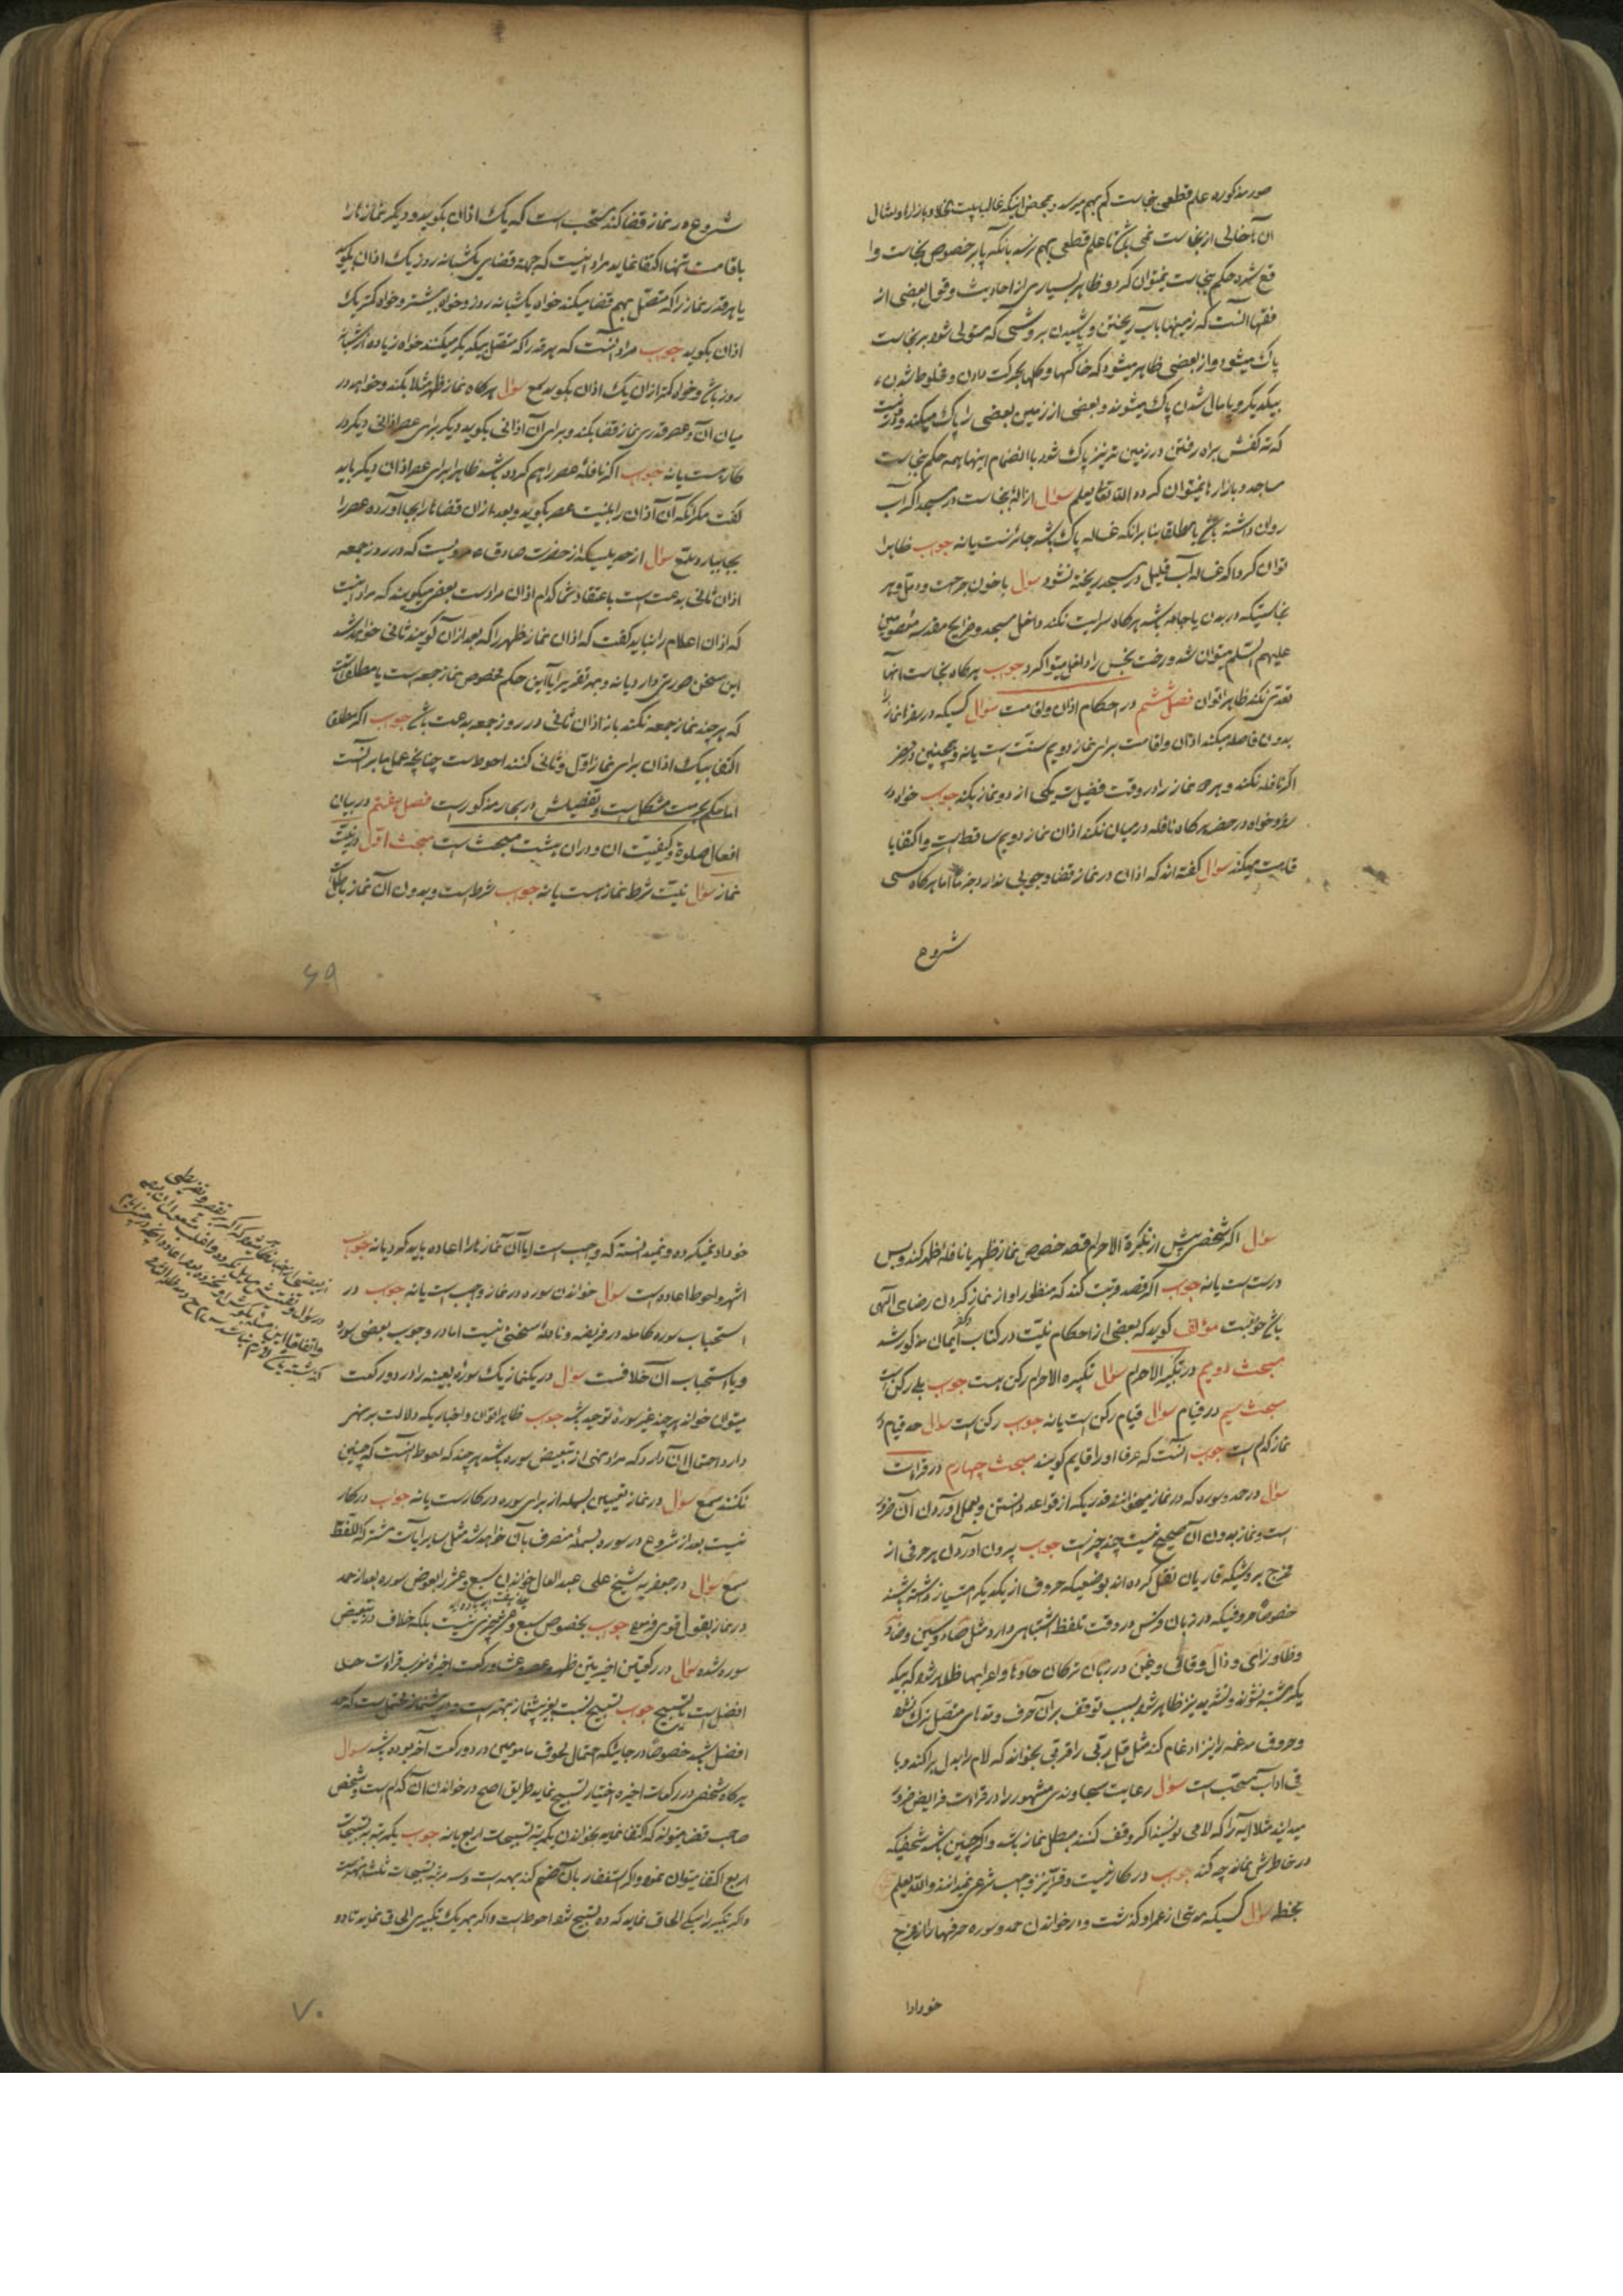 صور مذکوره علم قطعی بنجاست کم بهم میرسد و بمحض اینکه غالبا پشت بامها و بازارها و امثال
آن خالی از نجاست نمی باشد تا علم قطعی بهم نرسد بانکه پا بر خصوص نجاست وا
قع شد حکم بنجاست نمیتوان کرد و ظاهر بسیاری از احادیث و قول بعضی از
فقها آنست که زمینها بآب ریختن و پاشیدن بروشی که مستولی شود بر نجاست
پاک میشود و از بعضی ظاهر میشود که خاکها و گلها بحرکت دادن و مخلوط شدن
بیکدیگر و پامال شدن پاک میشوند و بعضی از زمین بعضی را پاک میکند
که ته کفش براه رفتن در زمین تر نیز پاک شود با انضمام اینها همه حکم بنجاست
مساجد و بازارها نمیتوان کرد و الله تعالی یعلم سؤال ازاله نجاست در مسجد اگر آب
روان داشته باشد یا مطلقا بنا برانکه غساله پاک باشد جائز است یا نه جواب ظاهرا
توان کرد اگر غساله آب قلیل در مسجد ریخته نشود سؤال با خون جراحت و دمل و هر
نجاستیکه در بدن یا جامه باشد هرگاه سرایت نکند داخل مسجد و ضرایح مقدسه معصومین
علیهم السلم میتوان شد و رخت نجس را داخل میتوا کرد جواب هرگاه نجاست بآنها
تعدی نکند ظاهرا توان فصل ششم در احکام اذان و اقامت سؤال کسیکه در سفر نماز را
بدون فاصله میکند اذان و اقامت برای نماز دویم سنت است یا نه و همچنین در حضر
اگر نافله نکند و هر دو نماز را در وقت فضیلت یکی از دو نماز بکند جواب خواه در
سفر و خواه در حضر هرگاه نافله در میان نکند اذان نماز دویم ساقط است و اکتفا با
قامت میکند سؤال گفته اند که اذان در نماز قضا وجوبی ندارد اما هرگاه کسی
شروع
شروع در نماز قضا کند مستحب است که یک اذان بگوید و دیگر نمازها را
باقامت تنها اکتفا نماید مراد اینست که جهة قضای یکشبانه روز یک اذان بگوید
یا هر قدر نماز را که متصل بهم قضا میکند خواه یکشبانه روز و خواه بیشتر و خواه کمتر یک
اذان بگوید جواب مراد آنست که هر قدر را که متصل بیکدیگر میکنند خواه زیاده از شبانه
روز باشد و خواه کمتر ازان یک اذان بگوید سمع سؤال هرگاه نماز ظهر مثلا بکند و خواهد در
میان آن و عصر قدری نماز قضا بکند و برای آن اذانی بگوید دیگر برای عصر اذانی دیگر در
کار هست یا نه جواب اگر نافله عصر را هم کرده باشد ظاهرا برای عصر اذان دیگر باید
گفت مگر انکه آن اذان را بنیت عصر بگوید و بعد ازان قضاها را بجا آورده عصر را
بجا بیاورد سمع سؤال از حدیثیکه از حضرت صادق ع مرویست که در روز جمعه
اذان ثانی بدعت است باعتقاد شما کدام اذان مراد است بعضی میگویند که مراد اینست
که اذان اعلام را نباید گفت که اذان نماز ظهر را که بعد ازان گویند ثانی خواهد شد
این سخن صورتی دارد یا نه و بهر تقدیر آیا این حکم مخصوص نماز جمعه است یا مطلقا است
که هر چند نماز جمعه نکنند باز اذان ثانی در روز جمعه بدعت باشد جواب اگر مطلقا
اکتفا بیک اذان برای نماز اول و ثانی کنند احوط است چنانچه عمل ما بر آنست
اما حکم بحرمت مشکل است و تفصیلش در بحار مذکور است فصل هفتم در بیان
افعال صلوة و کیفیت ان و دران هشت مبحث است مبحث اول در نیت
نماز سؤال نیت شرط نماز است یا نه جواب شرط است و بدون آن نماز باطل است
۶۹
سؤال اگر شخصی پیش از تکبیرة الاحرام قصد خصوص نماز ظهر یا نافله ظهر کند و بس
درست است یا نه جواب اگر قصد قربت کند که منظور او از نماز کردن رضای الهی
باشد خوبست مؤلف گوید که بعضی از احکام نیت در کتاب ایمان مذکور شد
مبحث دویم در تکبیر الاحرام سؤال تکبیره الاحرام رکن است جواب بلی رکن است
مبحث سیم در قیام سؤال قیام رکن است یا نه جواب رکن است سؤال حد قیام در
نماز کدام است جواب آنست که عرفا او را قایم گویند مبحث چهارم در قراءت
سؤال در حمد و سوره که در نماز میخوانند قدریکه از قواعد دانستن و بعمل آوردن آن ضرور
است و نماز بدون آن صحیح نیست چند چیز است جواب بیرون آوردن هر حرفی از
مخرج بروشیکه قاریان نقل کرده اند بوضعیکه حروف از یکدیگر امتیاز داشته باشند
خصوصا حروفیکه در زبان و کس در وقت تلفظ اشتباهی دارد مثل صاد و سین و ضاد
و ظا و زای و ذال و قاف و غین در زبان ترکان و اعرابها ظاهر شود که بیک
دیگر مشتبه نشوند و تشدید نیز ظاهر شود بسبب توقف بران حرف و مدهای متصل ترک نشود
و حروف مدغمه را نیز ادغام کند مثل قل ربی را قربی بخواند که لام را بدل برا کند و با
قی اداب مستحب است سؤال رعایت سجاوندی مشهور را در قراءت فرایض ضرور
میدانید مثلا آیه را که لامی نویسند اگر وقف کنند مبطل نماز باشد و اگر چنین باشد شخصیکه
در خاطرش نماند چه کند جواب در کار نیست و قرا نیز واجب شرعی نمیدانند والله یعلم
بخطه سؤال کسیکه مدتی از عمر او گذشت و در خواندن حمد و سوره حرفها را از مخرج
خود ادا
خود ادا نمیکرده و نمیدانسته که واجب است ایا آن نمازها را اعاده باید کرد یا نه جواب
اشهر و احوط اعاده است سؤال خواندن سوره در نماز واجب است یا نه جواب در
استحباب سوره کامله در فریضه و نافله سخنی نیست اما در وجوب بعضی سوره
و یا استحباب آن خلافست سؤال در یکنماز یک سوره بعینه را در دو رکعت
میتوان خواند هر چند غیر سوره توحید باشد جواب ظاهرا توان و اخباریکه دلالت بر نهی
دارد احتمال آن دارد که مراد نهی از تبعیض سوره باشد هر چند که احوط آنست که چنین
نکنند سمع سؤال در نماز تعیین بسمله از برای سوره در کار است یا نه جواب در کار
نیست بعد از شروع در سوره بسمله منصرف بآن خواهد شد مثل سایر آیات مشترکة اللفظ
سمع سؤال در جعفریه شیخ علی عبد العال خواندن سبع و عشر را بعوض سوره بعد از حمد
در نماز بقول قوی فرموده جواب بخصوص سبع و عشر چیزی نیست بلکه خلاف در تبعیض
سوره شده سؤال در رکعتین اخیرتین ظهر و عصر و عشا و رکعت اخیره مغرب قراءت حمد
افضل است یا تسبیح جواب تسبیح نسبت بغیر پیشنماز بهتر است و در پیشنماز محتمل است که حمد
افضل باشد خصوصا در جائیکه احتمال لحوق مامومین در دو رکعت آخر بوده باشد سؤال
هرگاه شخصی در رکعات اخیره اختیار تسبیح نماید طریق اصح در خواندن آن کدام است و شخص
صاحب قضا میتواند که اکتفا نماید بخواندن یکمرتبه تسبیحات اربع یا نه جواب یکمرتبه تسبیحات
اربع اکتفا میتوان نمود و اگر استغفار با آن ضم کند بهتر است و سه مرتبه تسبیحات ثلث بهتر است
و اگر تکبیر را بیکی الحاق نماید که ده تسبیح شود احوط است و اگر بهر یک تکبیری الحاق نماید تا دو
۷۰